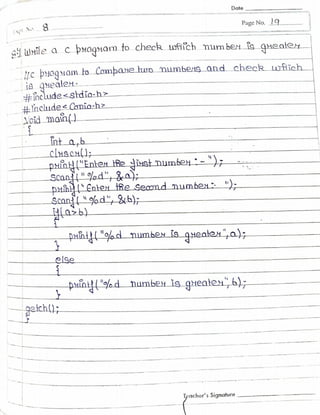 Date
Exp No. 8
Page No. 19
Write a C program to check which number is greater
//c program to Compare two numbers and check which
is greater.
#include<stdio.h>
#include<Conio.h>
void main()
{
int a,b
clrscr();
printf("Enter the first number :- ");
scanf("%d", &a);
printf("Enter the second number:- ");
scanf("%d", &b);
if(a>b)
{
printf("%d number is greater",a);
}
else
{
printf("%d number is greater",b);
}
getch();
}
Teacher's Signature